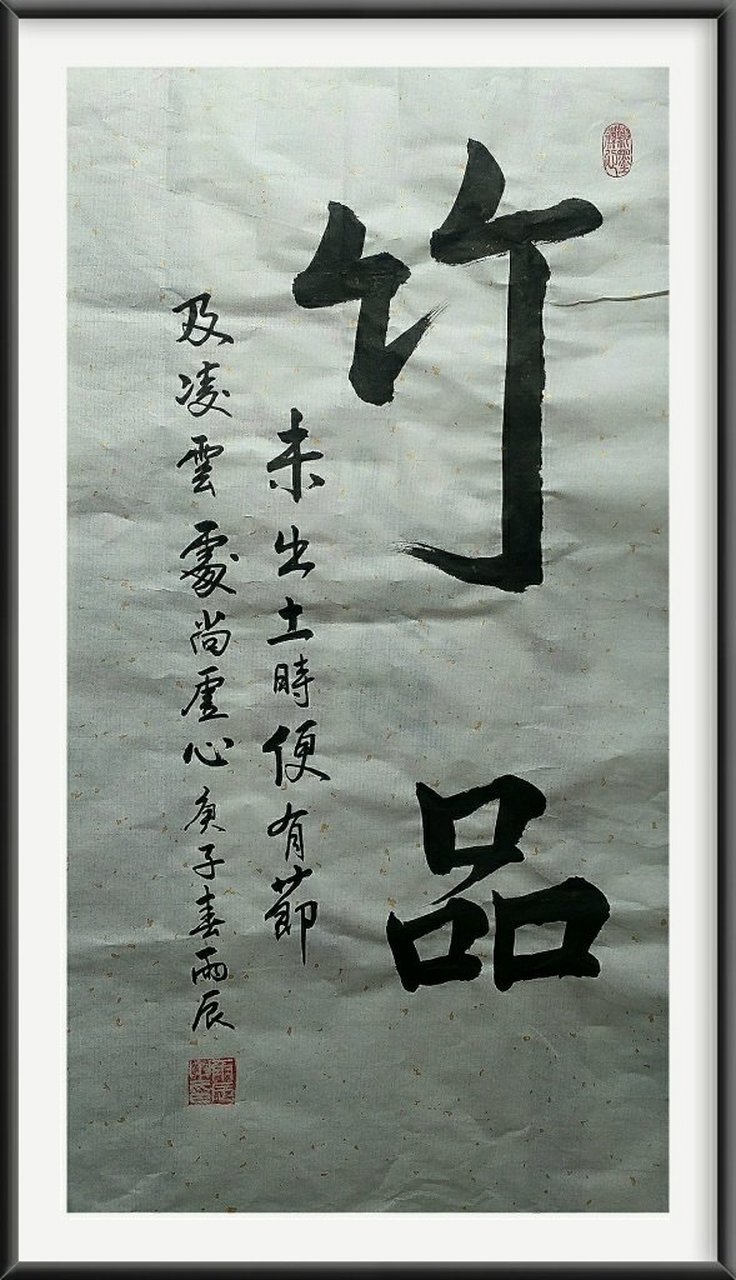 竹品
未出土時便有節
及凌雲處尚虛心 庚子春雨辰